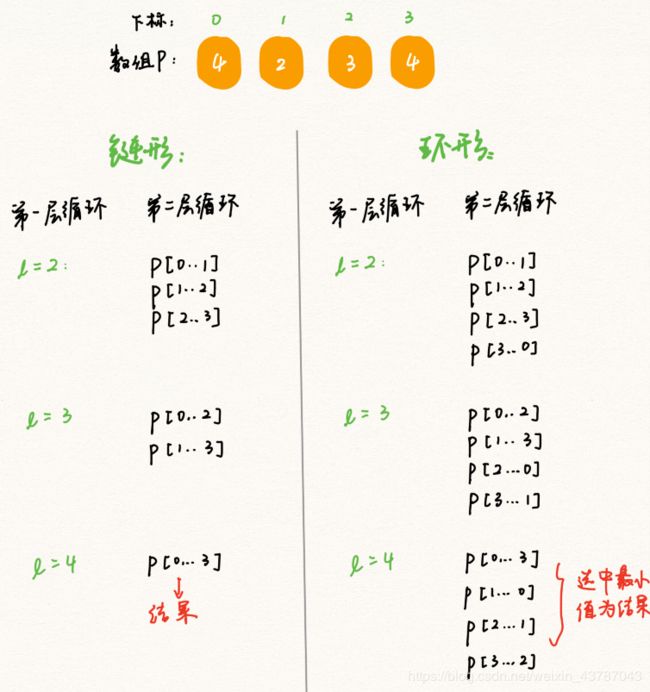 下标: 0 1 2 3
数组P: 4 2 3 4
链形:
第一层循环 第二层循环
l=2:
P[0..1]
P[1..2]
P[2..3]
l=3
P[0..2]
P[1..3]
l=4
P[0...3]
结果
环形:
第一层循环 第二层循环
l=2:
P[0..1]
P[1..2]
P[2..3]
P[3...0]
l=3
P[0..2]
P[1..3]
P[2...0]
P[3...1]
l=4
P[0...3]
P[1...0]
P[2...1]
P[3...2]
选中最小
值为结果
https://blog.csdn.net/weixin_43787043